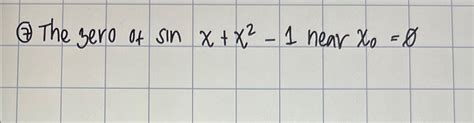 ⑦ The zero of sin x + x² - 1 near x₀ = 0